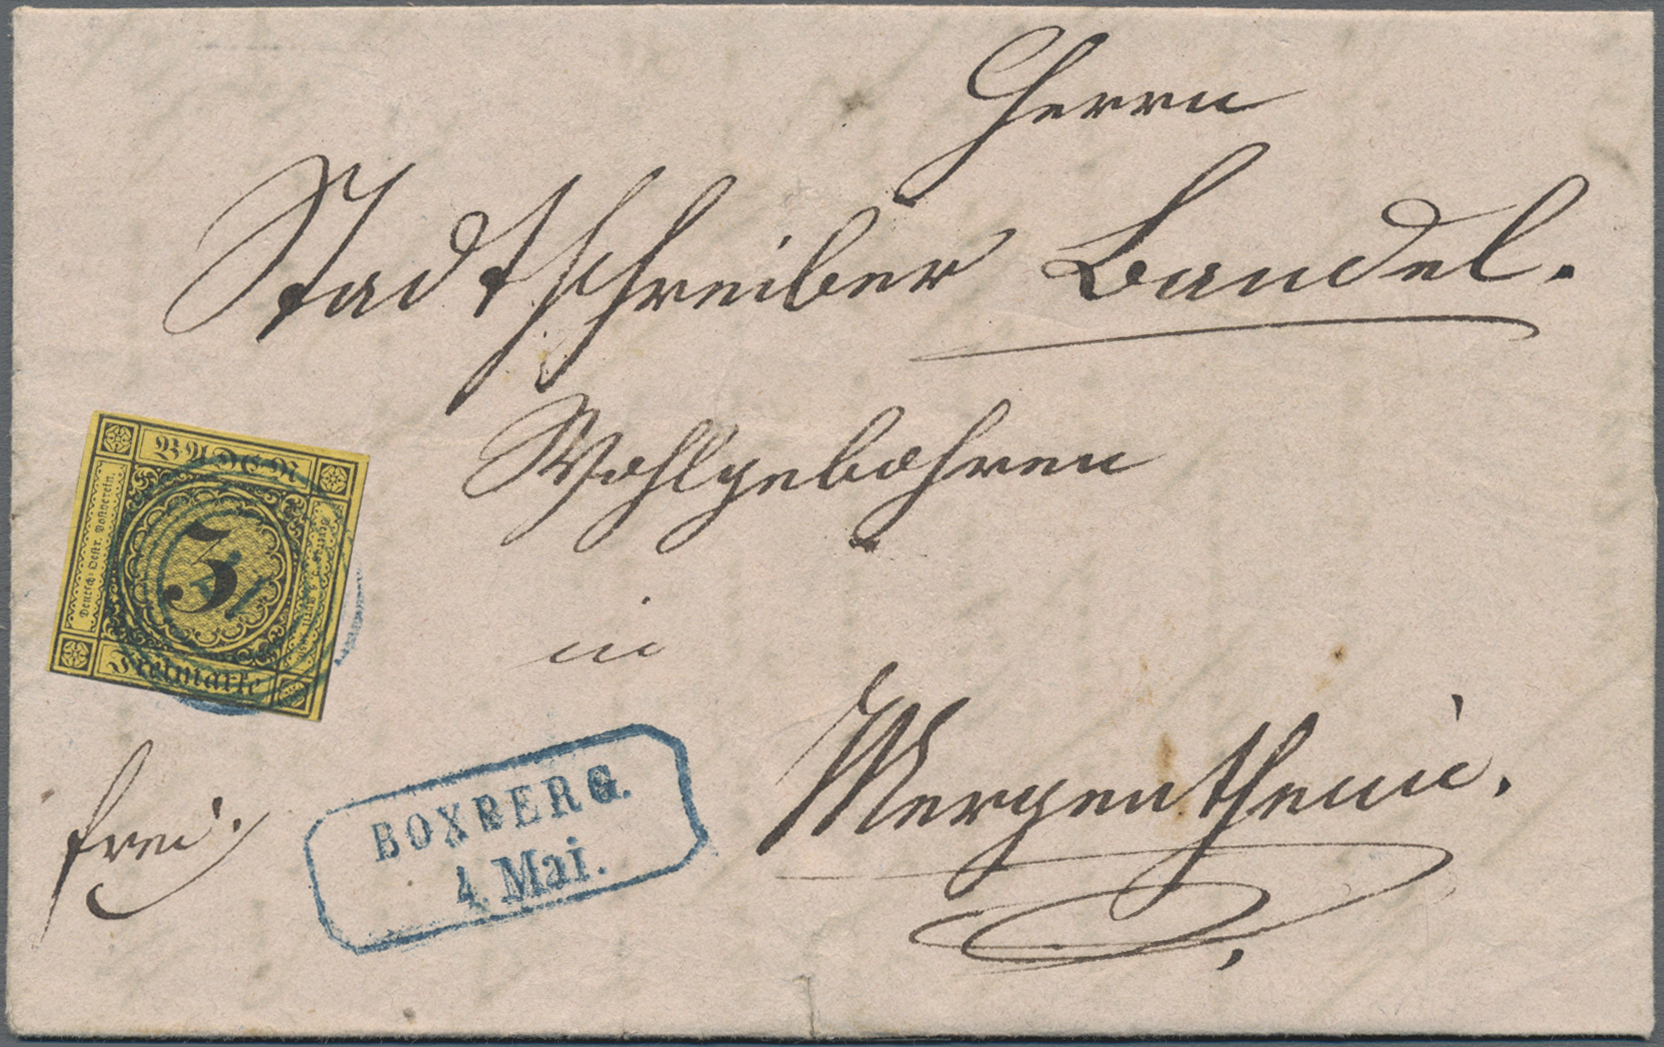 Herrn
Stadtschreiber Bandel.
Wohlgebohren
in
Mergentheim.
frei.
BADEN
Deutsch: Oestr. Postverein.
3
Freimarke
BOXBERG.
4 Mai.